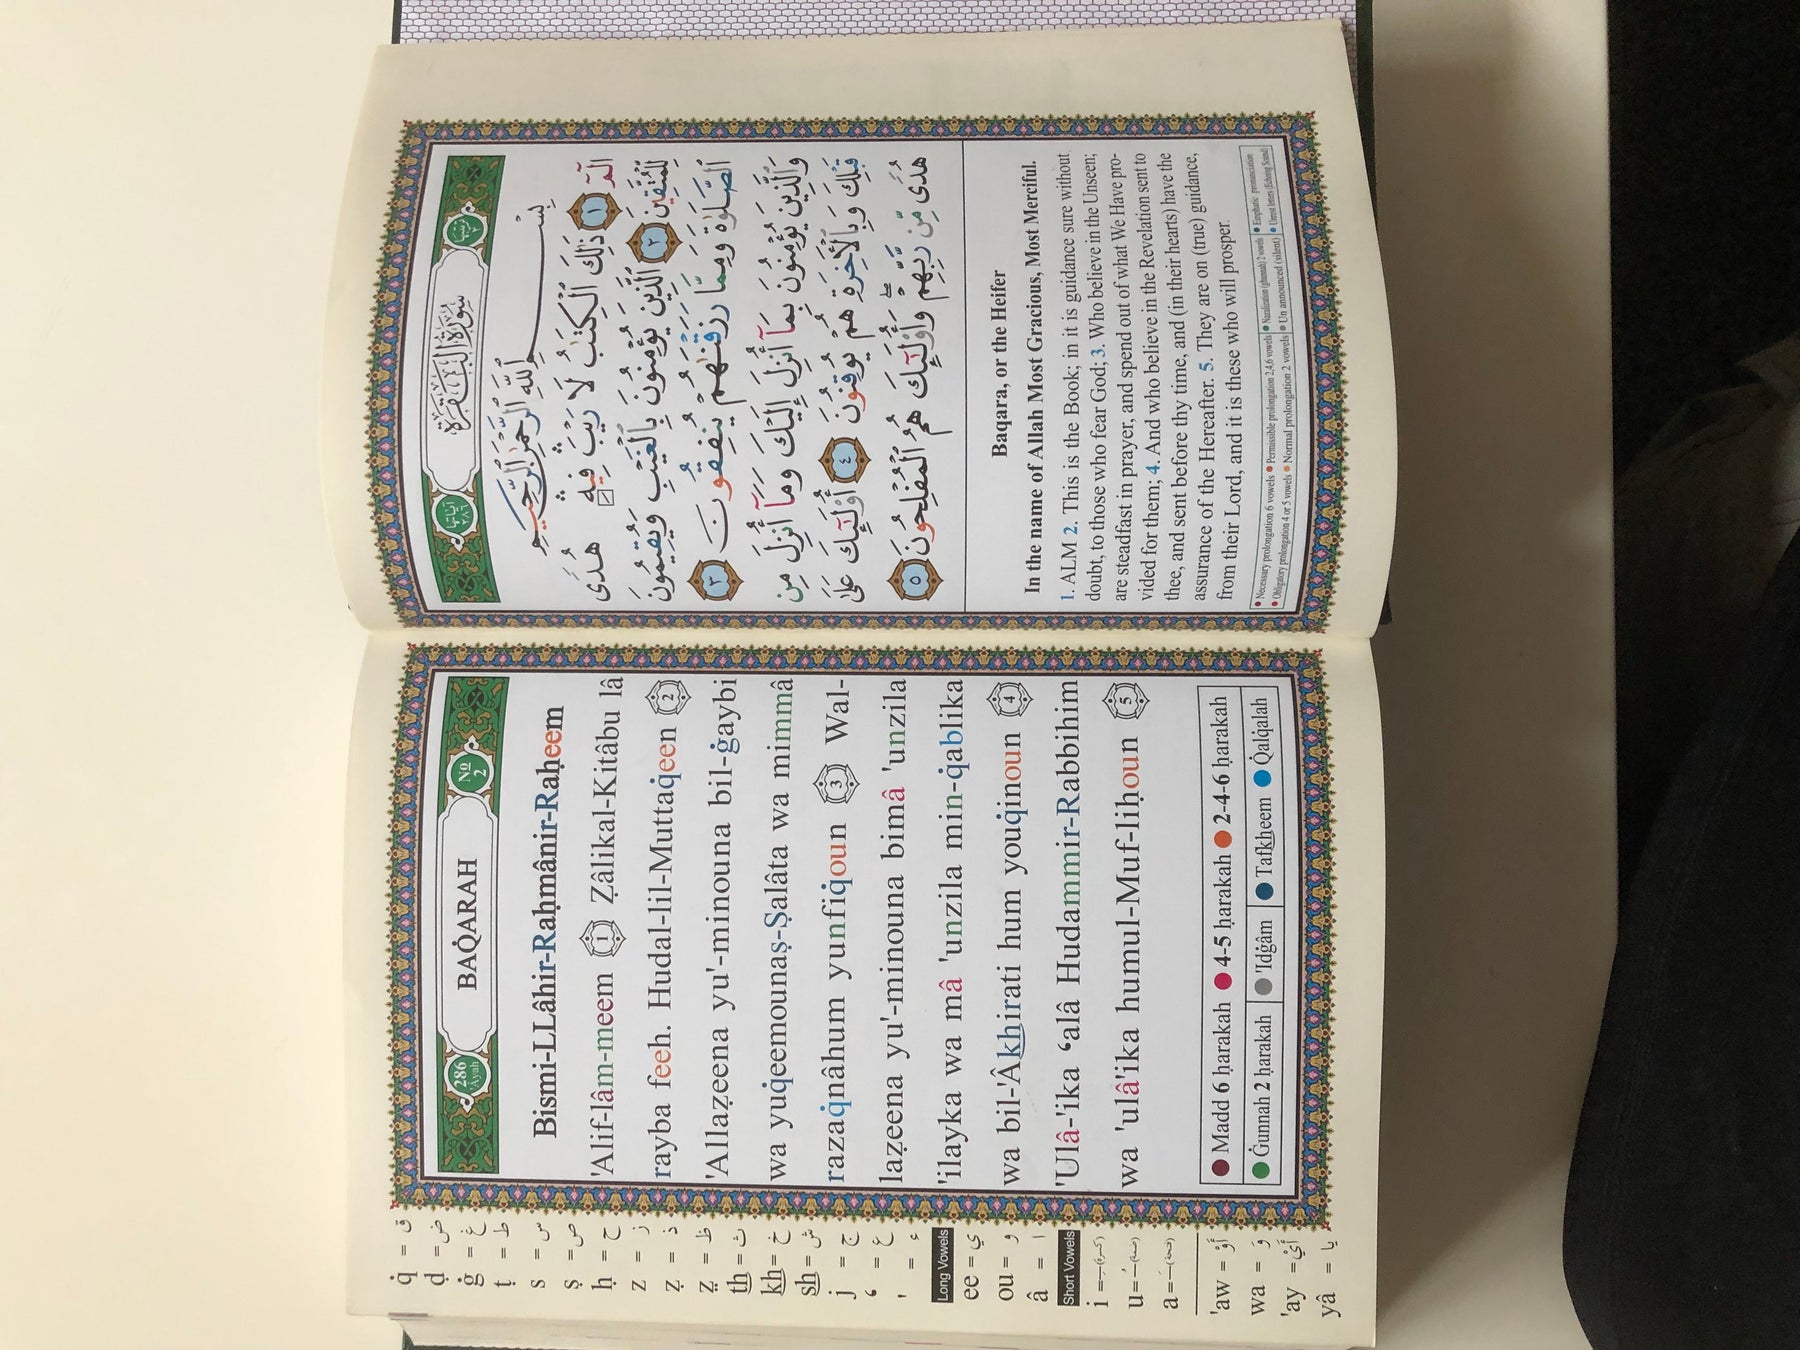 ق = q̇
ض = ḍ
غ = ġ
ط = ṭ
س = s
ص = ṣ
ح = ḥ
ز = z
ذ = ẓ
ظ = ẕ̣
ث = th
خ = kh
ش = sh
ج = j
ع = ‘
ء = '
Long Vowels
ee = ي
ou = و
â = ا
Short Vowels
i = (كسرة)
u = (ضمة)
a = (فتحة)
'aw = أَوْ
wa = وَ
'ay = أَيْ
yâ = يا
286 'Âyah
BAQ̇ARAH
No 2
Bismi-LLâhir-Raḥmânir-Raḥeem
'Alif-lâm-meem 1 Ẓâlikal-Kitâbu lâ
rayba feeh. Hudal-lil-Muttaq̇een 2
'Allaẓeena yu'-minouna bil-ġaybi
wa yuq̇eemounaṣ-Ṣalâta wa mimmâ
razaq̇nâhum yunfiqoun 3 Wal-
laẓeena yu'-minouna bimâ 'unzila
'ilayka wa mâ 'unzila min-q̇ablika
wa bil-'Âkhirati hum youq̇inoun 4
'Ulâ-'ika ‘alâ Hudammir-Rabbihim
wa 'ulâ'ika humul-Muf-liḥoun 5
Madd 6 ḥarakah 4-5 ḥarakah 2-4-6 ḥarakah
Ġunnah 2 ḥarakah 'Idġâm Tafkheem Q̇alq̇alah
آياتها ٢٨٦
سُورَةُ الْبَقَرَةِ
ترتيبها ٢
بِسْمِ ٱللَّهِ ٱلرَّحْمَٰنِ ٱلرَّحِيمِ
الٓمٓ ١ ذَٰلِكَ ٱلْكِتَٰبُ لَا رَيْبَ ۛ فِيهِ ۛ هُدًى
لِّلْمُتَّقِينَ ٢ ٱلَّذِينَ يُؤْمِنُونَ بِٱلْغَيْبِ وَيُقِيمُونَ
ٱلصَّلَوٰةَ وَمِمَّا رَزَقْنَٰهُمْ يُنفِقُونَ ٣
وَٱلَّذِينَ يُؤْمِنُونَ بِمَآ أُنزِلَ إِلَيْكَ وَمَآ أُنزِلَ مِن
قَبْلِكَ وَبِٱلْءَاخِرَةِ هُمْ يُوقِنُونَ ٤ أُو۟لَٰٓئِكَ عَلَىٰ
هُدًى مِّن رَّبِّهِمْ ۖ وَأُو۟لَٰٓئِكَ هُمُ ٱلْمُفْلِحُونَ ٥
Baqara, or the Heifer
In the name of Allah Most Gracious, Most Merciful.
1. ALM 2. This is the Book; in it is guidance sure without
doubt, to those who fear God; 3. Who believe in the Unseen;
are steadfast in prayer, and spend out of what We Have pro-
vided for them; 4. And who believe in the Revelation sent to
thee, and sent before thy time, and (in their hearts) have the
assurance of the Hereafter. 5. They are on (true) guidance,
from their Lord, and it is these who will prosper.
Necessary prolongation 6 vowels Permissible prolongation 2,4,6 vowels Nazalization (ghunnah) 2 vowels Emphatic pronunciation
Obligatory prolongation 4 or 5 vowels Normal prolongation 2 vowels Un announced (silent) Unrest letters (Echoing Sound)